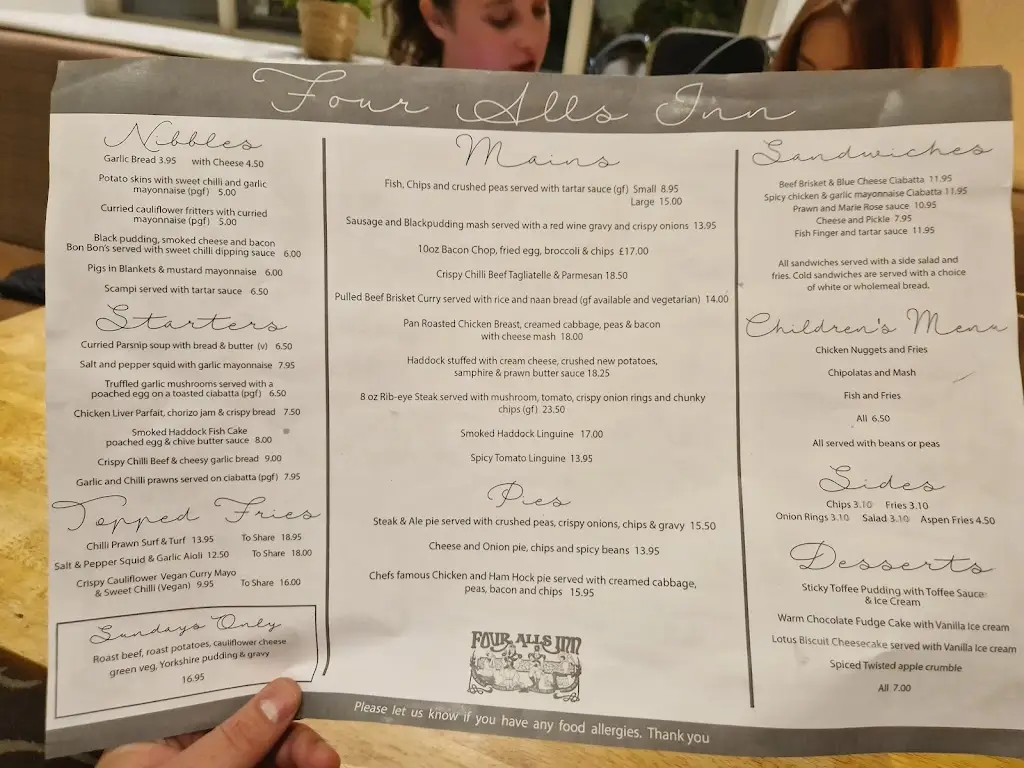 Four Alls Inn
Nibbles
Garlic Bread 3.95 with Cheese 4.50
Potato skins with sweet chilli and garlic
mayonnaise (pgf) 5.00
Curried cauliflower fritters with curried
mayonnaise (pgf) 5.00
Black pudding, smoked cheese and bacon
Bon Bon's served with sweet chilli dipping sauce 6.00
Pigs in Blankets & mustard mayonnaise 6.00
Scampi served with tartar sauce 6.50
Starters
Curried Parsnip soup with bread & butter (v) 6.50
Salt and pepper squid with garlic mayonnaise 7.95
Truffled garlic mushrooms served with a
poached egg on a toasted ciabatta (pgf) 6.50
Chicken Liver Parfait, chorizo jam & crispy bread 7.50
Smoked Haddock Fish Cake
poached egg & chive butter sauce 8.00
Crispy Chilli Beef & cheesy garlic bread 9.00
Garlic and Chilli prawns served on ciabatta (pgf) 7.95
Topped Fries
Chilli Prawn Surf & Turf 13.95 To Share 18.95
Salt & Pepper Squid & Garlic Aioli 12.50 To Share 18.00
Crispy Cauliflower Vegan Curry Mayo
& Sweet Chilli (Vegan) 9.95 To Share 16.00
Sundays Only
Roast beef, roast potatoes, cauliflower cheese
green veg, Yorkshire pudding & gravy
16.95
Mains
Fish, Chips and crushed peas served with tartar sauce (gf) Small 8.95
Large 15.00
Sausage and Blackpudding mash served with a red wine gravy and crispy onions 13.95
10oz Bacon Chop, fried egg, broccoli & chips £17.00
Crispy Chilli Beef Tagliatelle & Parmesan 18.50
Pulled Beef Brisket Curry served with rice and naan bread (gf available and vegetarian) 14.00
Pan Roasted Chicken Breast, creamed cabbage, peas & bacon
with cheese mash 18.00
Haddock stuffed with cream cheese, crushed new potatoes,
samphire & prawn butter sauce 18.25
8 oz Rib-eye Steak served with mushroom, tomato, crispy onion rings and chunky
chips (gf) 23.50
Smoked Haddock Linguine 17.00
Spicy Tomato Linguine 13.95
Pies
Steak & Ale pie served with crushed peas, crispy onions, chips & gravy 15.50
Cheese and Onion pie, chips and spicy beans 13.95
Chefs famous Chicken and Ham Hock pie served with creamed cabbage,
peas, bacon and chips 15.95
FOUR ALLS INN
Sandwiches
Beef Brisket & Blue Cheese Ciabatta 11.95
Spicy chicken & garlic mayonnaise Ciabatta 11.95
Prawn and Marie Rose sauce 10.95
Cheese and Pickle 7.95
Fish Finger and tartar sauce 11.95
All sandwiches served with a side salad and
fries. Cold sandwiches are served with a choice
of white or wholemeal bread.
Children's Menu
Chicken Nuggets and Fries
Chipolatas and Mash
Fish and Fries
All 6.50
All served with beans or peas
Sides
Chips 3.10 Fries 3.10
Onion Rings 3.10 Salad 3.10 Aspen Fries 4.50
Desserts
Sticky Toffee Pudding with Toffee Sauce
& Ice Cream
Warm Chocolate Fudge Cake with Vanilla Ice cream
Lotus Biscuit Cheesecake served with Vanilla Ice cream
Spiced Twisted apple crumble
All 7.00
Please let us know if you have any food allergies. Thank you